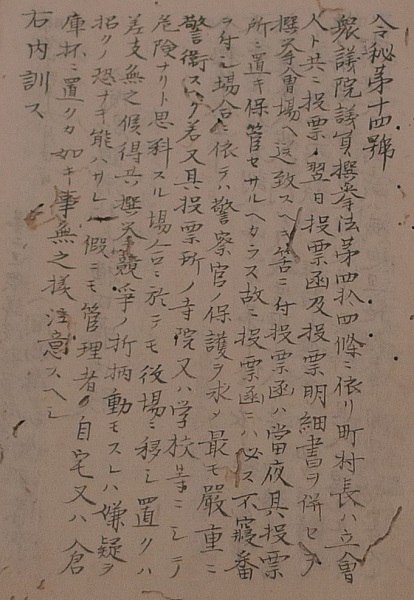 令秘第十四號
衆議院議員撰挙法第四拾四條ニ依リ町村長ハ立會
人ト共ニ投票ノ翌日投票函及投票明細書ヲ併セテ
撰挙會場ヘ送致スヘキ筈ニ付投票函ハ當夜其投票
所ニ置キ保管セサルヘカラス故ニ投票函ニハ必ス不寝番
ヲ付シ場合ニ依テハ警察官ノ保護ヲ求メ最モ嚴重ニ
警衛スヘク若又其投票所ノ寺院又ハ学校等ニシテ
危険ナリト思料スル場合ニ於テモ役場ニ移シ置クハ
差支無之候得共撰挙競爭ノ折柄動モスレハ嫌疑ヲ
招クノ恐ナキ能ハサレハ假ニモ管理者ノ自宅又ハ倉
庫抔ニ置クカ如キ事無之様注意スヘシ
右内訓ス